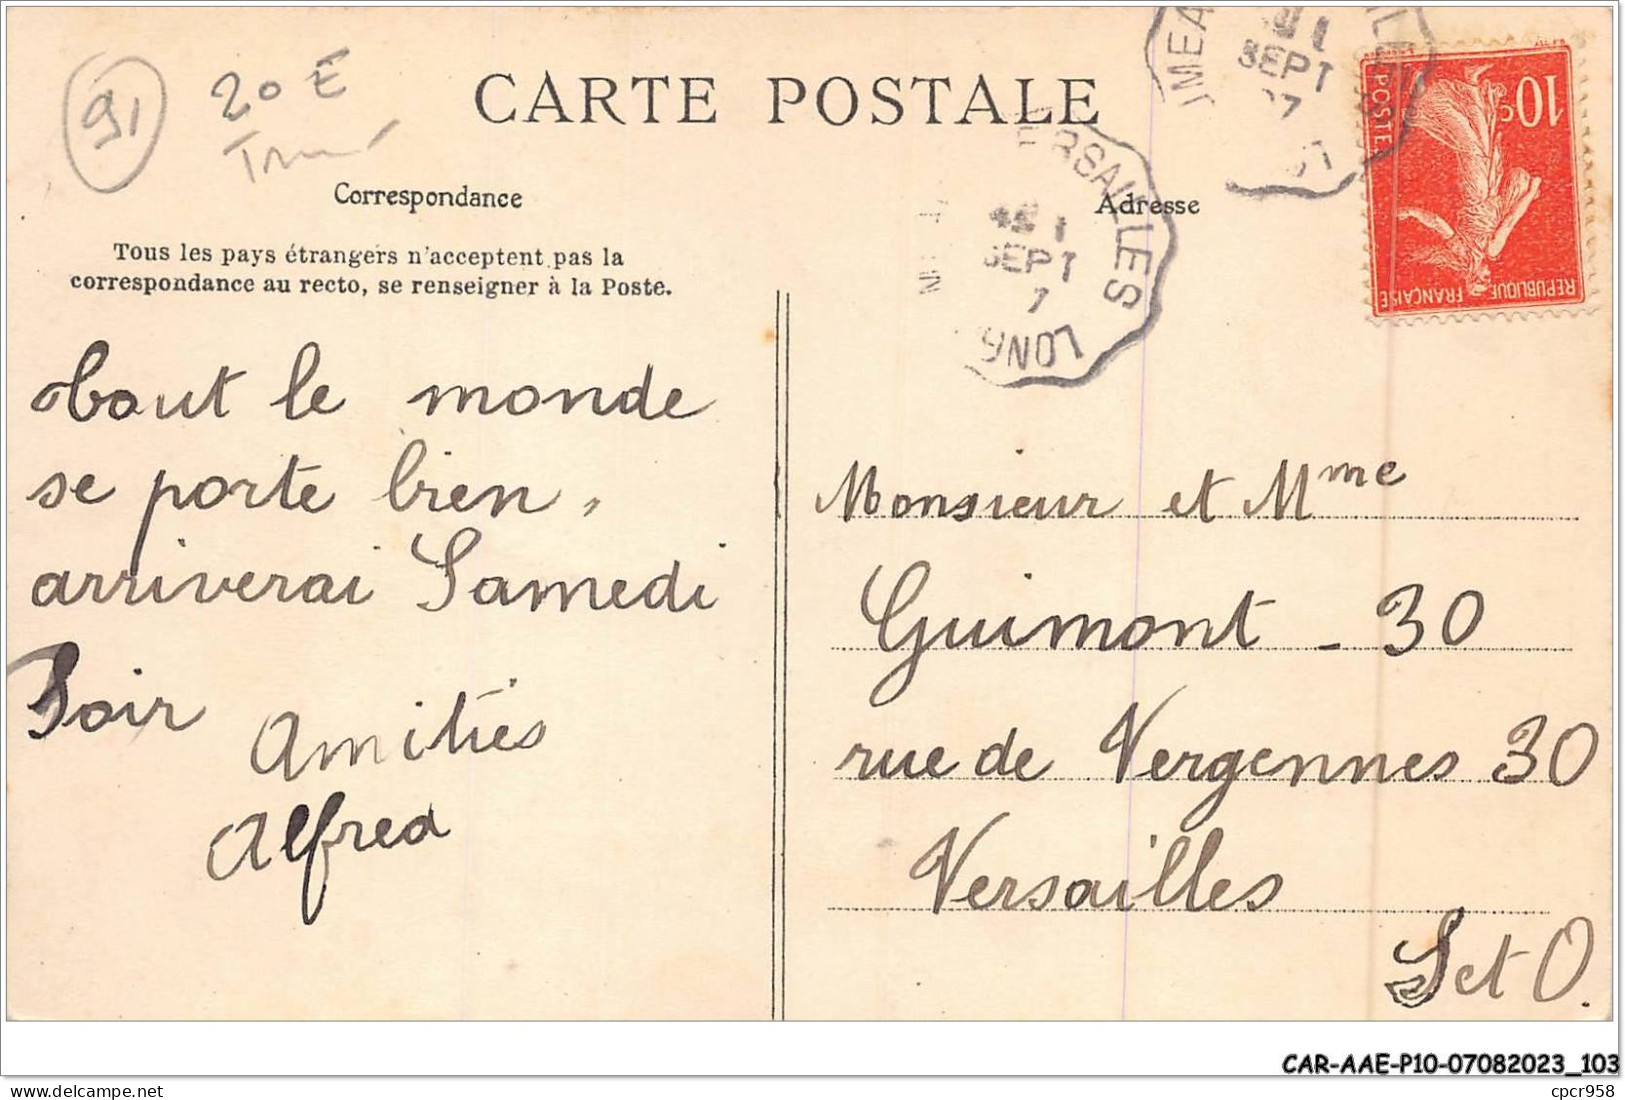 91
20 E
CARTE POSTALE
Correspondance
Tous les pays étrangers n'acceptent pas la
correspondance au recto, se renseigner à la Poste.
tout le monde
se porte bien,
arriverai Samedi
Soir
Amitiés
Alfred
ERSAILLES
SEPT
7
LONG
SEPT
Adresse
10c
POSTE
REPUBLIQUE FRANÇAISE
Monsieur et Mme
Guimont - 30
rue de Vergennes 30
Versailles
S et O.
CAR-AAE-P10-07082023_103
cpcr958